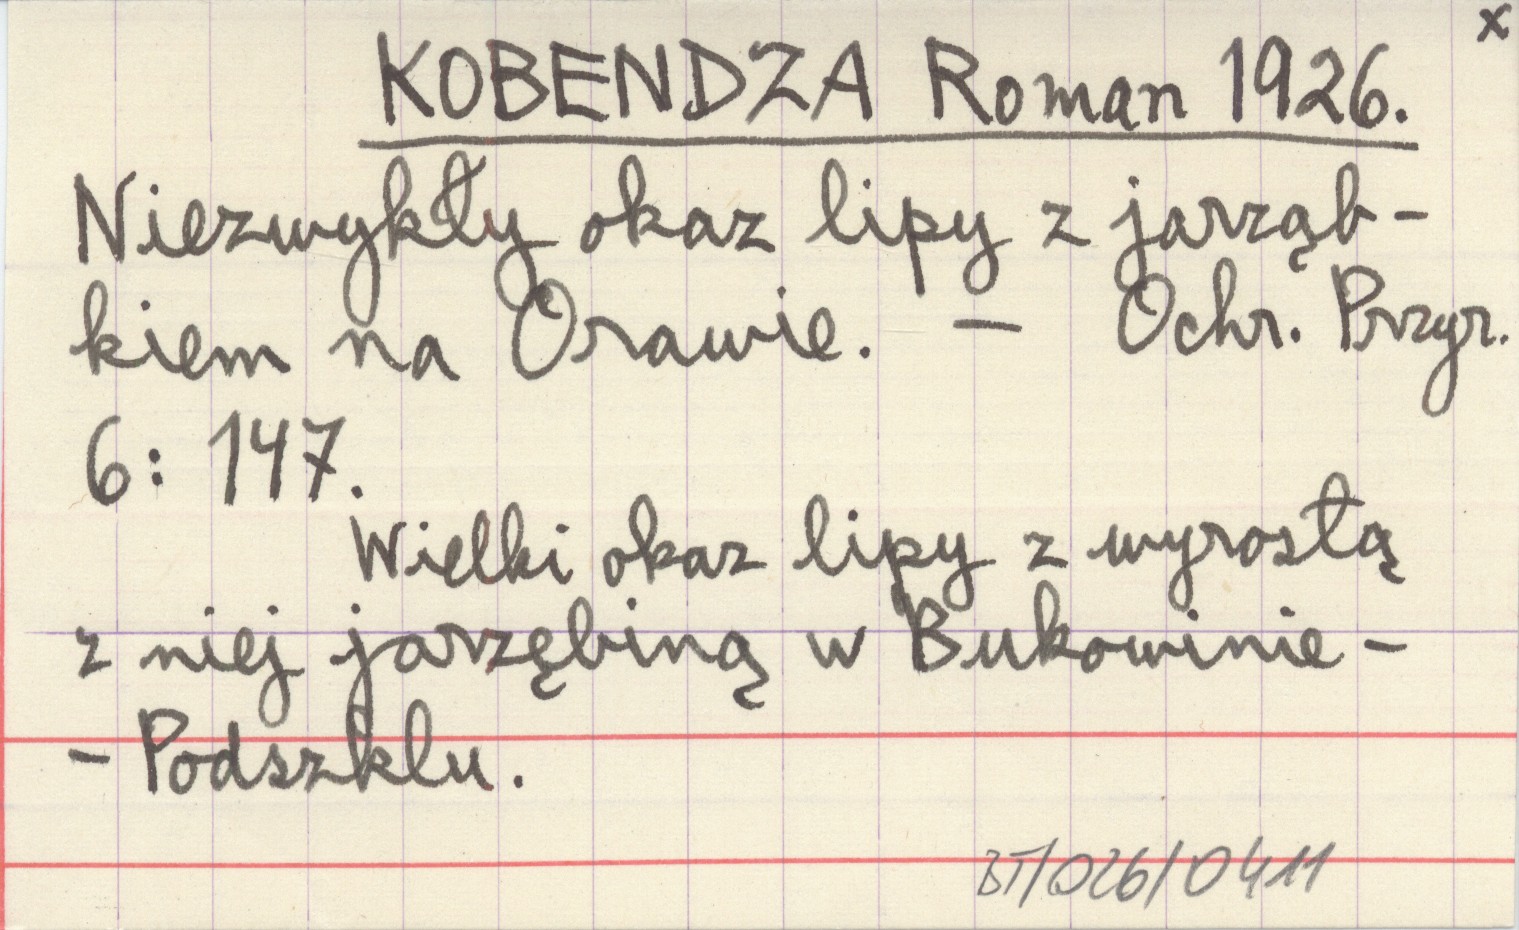 x
KOBENDZA Roman 1926.
Niezwykły okaz lipy z jarząb-
kiem na Orawie. — Ochr. Przyr.
6: 147.
Wielki okaz lipy z wyrosłą
z niej jarzębiną w Bukowinie -
- Podszklu.
BT/026/0411